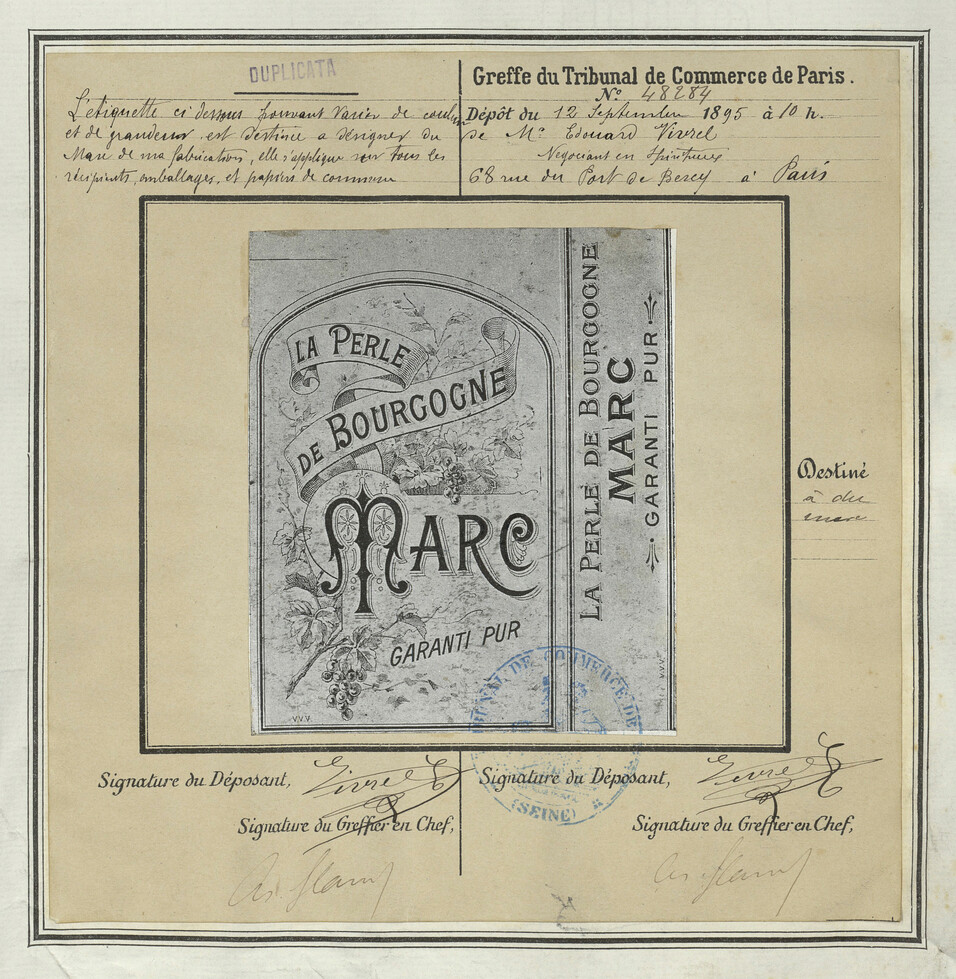 DUPLICATA
L'étiquette ci dessus pouvant varier de couleur
et de grandeur est destinée a désigner du
Marc de ma fabrication, elle s'applique sur tous les
récipients, emballages, et papiers de commerce
Greffe du Tribunal de Commerce de Paris.
N° 48284
Dépôt du 12 Septembre 1895 à 10 h.
de Mr Edouard Vivrel
Negociant en Spiritueux
68 rue du Port de Bercy à Paris
LA PERLE
DE BOURGOGNE
MARC
GARANTI PUR
V.V.V.
LA PERLE DE BOURGOGNE
MARC
GARANTI PUR
V.V.V.
Destiné
à du
marc
TRIBUNAL DE COMMERCE DE
(SEINE)
Signature du Déposant, Vivrel
Signature du Greffier en Chef,
Signature du Déposant, Vivrel
Signature du Greffier en Chef,